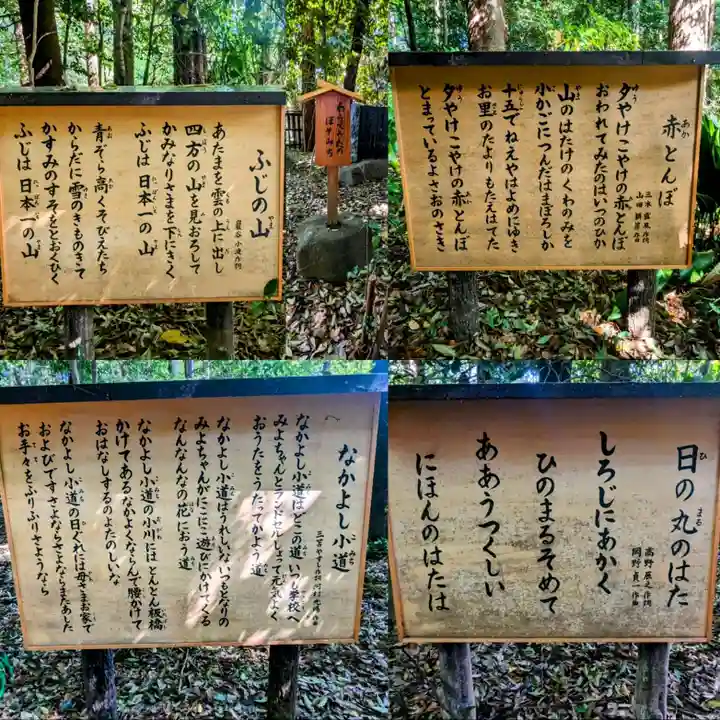 ふじの山
巖谷小波作詞
あたまを雲の上に出し
四方の山を見おろして
かみなりさまを下にきく
ふじは日本一の山
青ぞら高くそびえたち
からだに雪のきものきて
かすみのすそをとおくひく
ふじは日本一の山
赤とんぼ
三木露風作詞
山田耕筰作曲
夕やけこやけの赤とんぼ
おわれてみたのはいつのひか
山のはたけのくわのみを
小かごにつんだはまぼろしか
十五でねえやはよめにゆき
お里のたよりもたえはてた
夕やけこやけの赤とんぼ
とまっているよさおのさき
なかよし小道
三苫やすし作詞 河村光陽作曲
なかよし小道はどこの道 いつも学校へ
みよちゃんとランドセルしょって元気よく
おうたをうたってかよう道
なかよし小道はうれしいな いつもとなりの
みよちゃんがにこにこ遊びにかけてくる
なんなんなの花におう道
なかよし小道の小川には とんとん板橋
かけてあるなかよくならんで腰かけて
おはなしするのよたのしいな
なかよし小道の日ぐれには 母さまお家で
およびですさよならさよならまたあした
お手々をふりふりさようなら
日の丸のはた
高野辰之作詞
岡野貞一作曲
しろじにあかく
ひのまるそめて
ああうつくしい
にほんのはたは